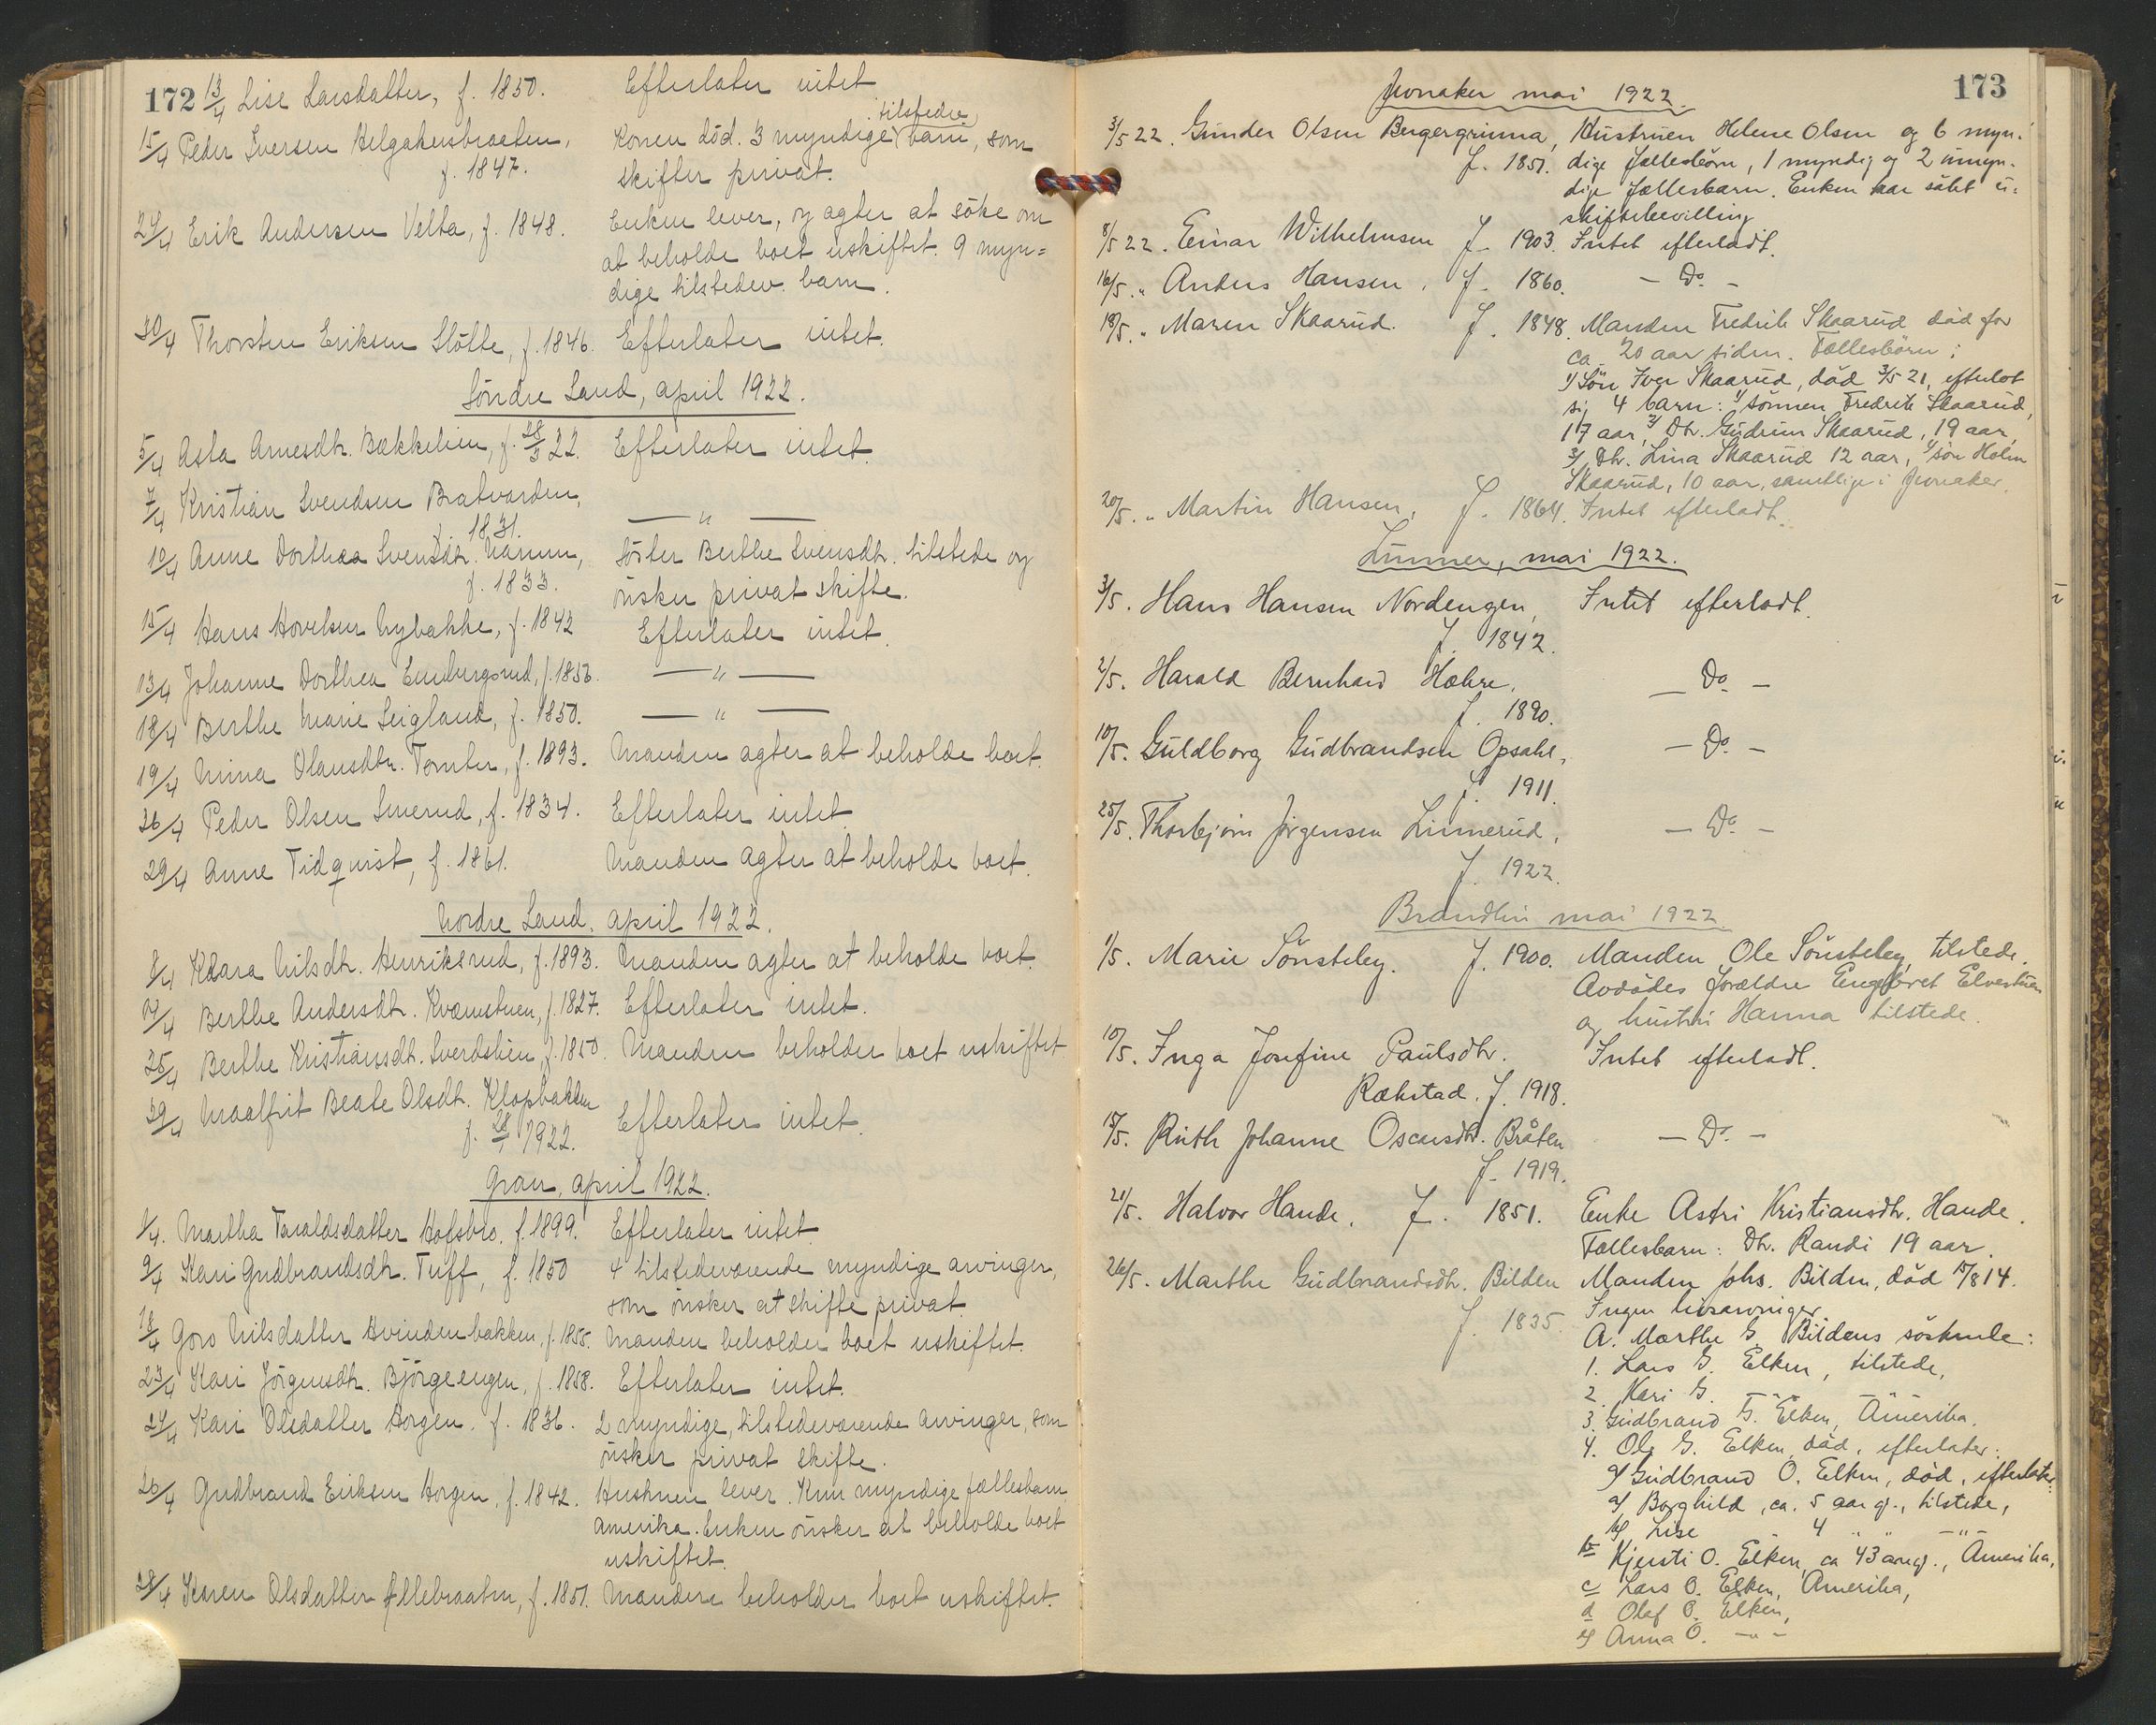 172 13/4 Lise Larsdatter, f. 1850. Efterlater intet
15/4 Peder Iversen Helgakersbraaten, Konen död. 3 myndige tilstedev. barn, som
f. 1847. skifter privat.
24/4 Erik Andersen Velta, f. 1848. Enken lever, og agter at söke om
at beholde boet uskiftet. 9 myn=
dige tilstedev. barn.
30/4 Thorsten Eriksen Slötte, f. 1846. Efterlater intet.
Söndre Land, april 1922.
5/4 Asta Arnesdtr. Bækkelien, f. 28/3 22. Efterlater intet.
7/4 Kristian Svendsen Bratvorden,
f. 1831. — " —
10/4 Anne Dorthea Svensdtr. , Söster Berthe Svensdtr. tilstede og
f. 1833. önsker privat skifte.
15/4 Hans Hovelsen Nybakke, f. 1842 Efterlater intet.
13/4 Johanne Dorthea , f. 1856. — " —
18/4 Berthe Marie Leigland, f. 1850. — " —
19/4 Nina Olausdtr. Tomter, f. 1893. Manden agter at beholde boet.
26/4 Peder Olsen Smerud, f. 1834. Efterlater intet
29/4 Anne Tidquist, f. 1861. Manden agter at beholde boet.
Nordre Land, april 1922.
8/4 Klara Nilsdtr. Henriksrud, f. 1893. Manden agter at beholde boet.
/4 Berthe Andersdtr. Kværnstuen, f. 1827. Efterlater intet.
25/4 Berthe Kristiansdtr. Sverdslien, f. 1850. Manden beholder boet uskiftet
29/4 Maalfrit Beate Olsdtr. Klopbakken
f. 1922. Efterlater intet.
Gran, april 1922.
1/4. Martha Taraldsdatter Hofsbro, f. 1899. Efterlater intet
9/4 Kari Gudbrandsdtr. Tuff, f. 1850 4 tilstedeværende myndige arvinger,
som önsker at skifte privat
18/4 Goro Nilsdatter Kvindenbakken, f. 1855. Manden beholder boet uskiftet.
23/4 Kari Jörgensdtr. Björgeengen, f. 1858. Efterlater intet.
24/4 Kari Olsdatter Horgen. f. 1836. 2 myndige, tilstedeværende arvinger, som
önsker privat skifte.
26/4 Gudbrand Eriksen Horgen, f. 1842. Hustruen lever. Kun myndige fællesbarn
Amerika. Enken önsker at beholde boet
uskiftet.
28/4 Karen Olsdatter Ellebraaten, f. 1851. Manden beholder boet uskiftet.
173
Jevnaker mai 1922.
3/5 22. Gunder Olsen Bergergrinna, Hustruen Helene Olsen og 6 myn-
f. 1851. dige fællesbörn, 1 myndig og 2 umyn-
dige fællesbarn. Enken har sökt u-
skiftebevilling
8/5 22. Einar Wilhelmsen f. 1903. Intet efterladt.
16/5. " Anders Hansen, f. 1860. — Do. —
18/5. " Maren Skaarud. f. 1848. Manden Fredrik Skaarud död for
ca. 20 aar siden. Fællesbörn:
1/ Sön Iver Skaarud, död 3/5 21, efterlot
sig 4 barn: 1/ sönnen Fredrik Skaarud,
17 aar, 2/ Dtr. Gudrun Skaarud, 19 aar,
3/ Dtr. Lina Skaarud 12 aar, 4/ sön Holm
Skaarud, 10 aar, samtlige i Jevnaker.
20/5. " Martin Hansen, f. 1864. Intet efterladt.
Lunner, mai 1922.
3/5. Hans Hansen Nordengen, Intet efterladt.
f. 1842.
2/5. Harald Bernhard Hæhre, — Do. —
f. 1890.
10/5. Guldborg Gudbrandsen Opsahl, — Do. —
f. 1911.
25/5. Thorbjörn Jörgensen Linnerud, — Do. —
f. 1922.
Brandbu mai 1922
1/5. Marie Sönsteby. f. 1900. Manden Ole Sönsteby tilstede.
Avdödes forældre Engebret Elvestuen
og hustru Hanna tilstede.
10/5. Inga Josefine Paulsdtr. Intet efterladt.
Rækstad. f. 1918.
15/5. Ruth Johanne Oscarsdtr. Bråten — Do. —
f. 1919.
21/5. Halvor Hande, f. 1851. Enke Astri Kristiansdtr. Hande.
Fællesbarn: Dtr. Randi 19 aar.
26/5. Marthe Gudbrandsdtr. Bilden Manden Johs. Bilden, död 15/8 14.
f. 1835. Ingen livsarvinger.
A. Marthe G. Bildens söskende:
1. Lars G. Elken, tilstede,
2. Kari G. — " — — " —
3. Gudbrand G. Elken, Amerika.
4. Ole G. Elken, död, efterlater:
a/ Gudbrand O. Elken, död, efterlater:
a/ Borghild, ca. 5 aar gl., tilstede,
b/ Lise 4 " " — " —
b Kjersti O. Elken, ca 43 aar gl., Amerika,
c/ Lars O. Elken, Amerika,
d Olaf O. Elken,
e/ Anna O. — " —